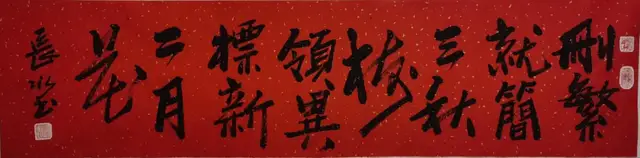 刪繁
就簡
三秋
樹
領異
標新
二月
花
長